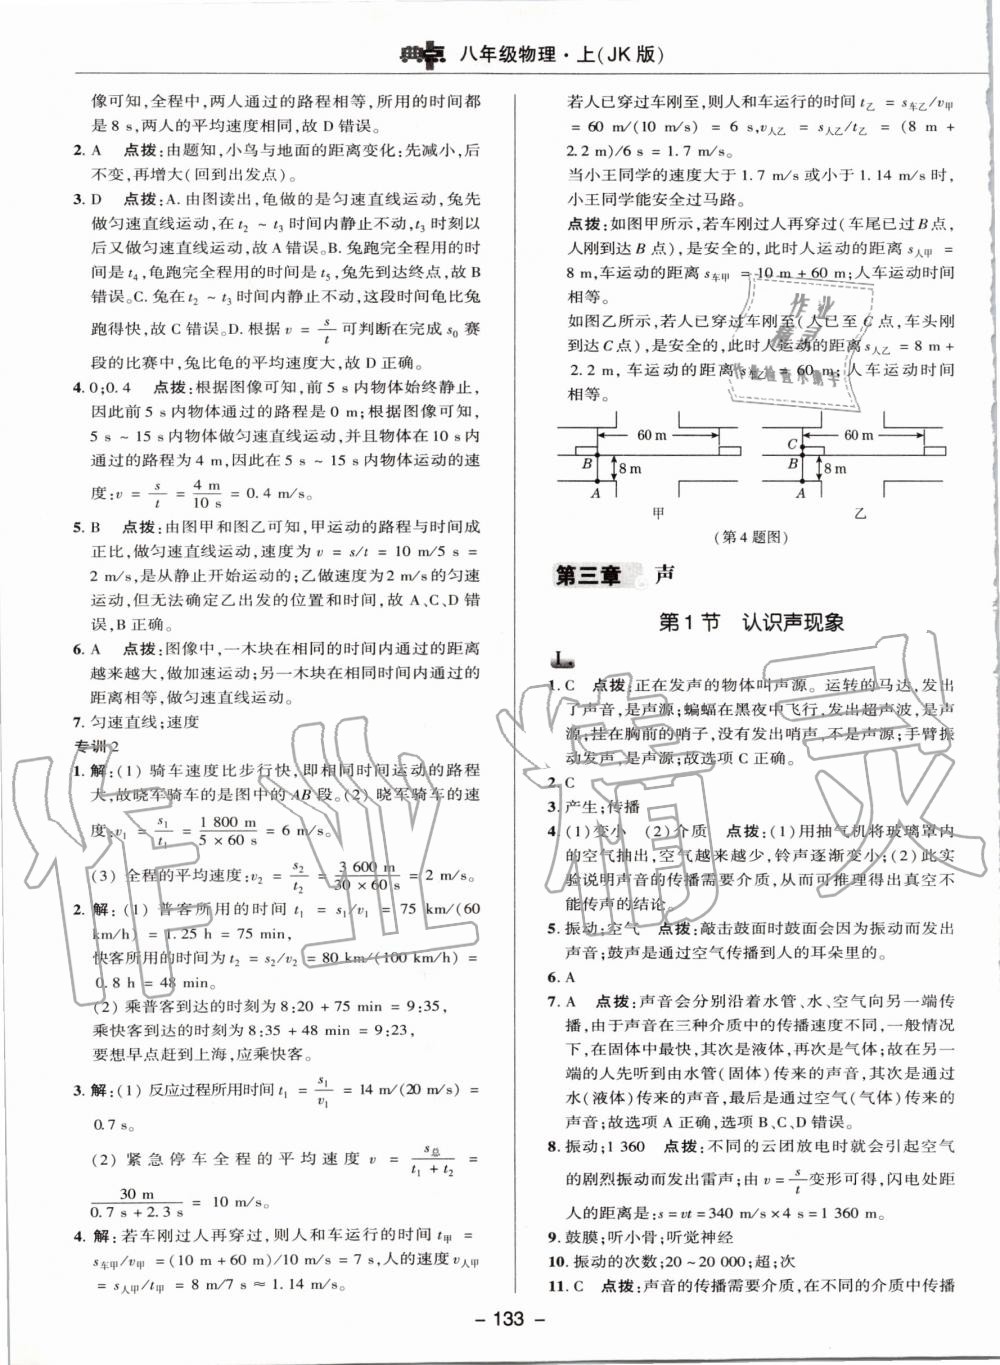 典点 八年级物理·上(JK版)
像可知,全程中,两人通过的路程相等,所用的时间都
是 8 s,两人的平均速度相同,故 D 错误。
2. A 点拨:由题知,小鸟与地面的距离变化:先减小,后
不变,再增大(回到出发点)。
3. D 点拨:A. 由图读出,龟做的是匀速直线运动,兔先
做匀速直线运动,在 t₂ ~ t₃ 时间内静止不动,t₃时刻以
后又做匀速直线运动,故 A 错误。B. 兔跑完全程用的时
间是 t₄,龟跑完全程用的时间是 t₅,兔先到达终点,故 B
错误。C. 兔在 t₂ ~ t₃ 时间内静止不动,这段时间龟比兔
跑得快,故 C 错误。D. 根据 v = s/t 可判断在完成 s₀ 赛
段的比赛中,兔比龟的平均速度大,故 D 正确。
4. 0;0.4 点拨:根据图像可知,前 5 s 内物体始终静止,
因此前 5 s 内物体通过的路程是 0 m;根据图像可知,
5 s ~ 15 s 内物体做匀速直线运动,并且物体在 10 s 内
通过的路程为 4 m,因此在 5 s ~ 15 s 内物体运动的速
度:v = s/t = 4 m/10 s = 0.4 m/s。
5. B 点拨:由图甲和图乙可知,甲运动的路程与时间成
正比,做匀速直线运动,速度为 v = s/t = 10 m/5 s =
2 m/s,是从静止开始运动的;乙做速度为 2 m/s 的匀速
运动,但无法确定乙出发的位置和时间,故 A、C、D 错
误,B 正确。
6. A 点拨:图像中,一木块在相同的时间内通过的距离
越来越大,做加速运动;另一木块在相同的时间内通过的
距离相等,做匀速直线运动。
7. 匀速直线;速度
专训 2
1. 解:(1) 骑车速度比步行快,即相同时间运动的路程
大,故晓军骑车的是图中的 AB 段。(2) 晓军骑车的速
度:v₁ = s₁/t₁ = 1 800 m/5 × 60 s = 6 m/s。
(3) 全程的平均速度:v₂ = s₂/t₂ = 3 600 m/30 × 60 s = 2 m/s。
2. 解:(1) 普客所用的时间 t₁ = s₁/v₁ = 75 km/(60
km/h) = 1.25 h = 75 min,
快客所用的时间为 t₂ = s₂/v₂ = 80 km/(100 km/h) =
0.8 h = 48 min。
(2) 乘普客到达的时刻为 8:20 + 75 min = 9:35,
乘快客到达的时刻为 8:35 + 48 min = 9:23,
要想早点赶到上海,应乘快客。
3. 解:(1) 反应过程所用时间 t₁ = s₁/v₁ = 14 m/(20 m/s) =
0.7 s。
(2) 紧急停车全程的平均速度 v = s总/(t₁ + t₂) =
30 m/(0.7 s + 2.3 s) = 10 m/s。
4. 解:若车刚过人再穿过,则人和车运行的时间 t甲 =
s车甲/v甲 = (10 m + 60 m)/10 m/s = 7 s,人的速度 v人甲
= s人甲/t甲 = 8 m/7 s ≈ 1.14 m/s。
若人已穿过车刚至,则人和车运行的时间 t乙 = s车乙/v甲
= 60 m/(10 m/s) = 6 s,v人乙 = s人乙/t乙 = (8 m +
2.2 m)/6 s = 1.7 m/s。
当小王同学的速度大于 1.7 m/s 或小于 1.14 m/s 时,
小王同学能安全过马路。
点拨:如图甲所示,若车刚过人再穿过(车尾已过 B 点,
人刚到达 B 点),是安全的,此时人运动的距离 s人甲 =
8 m,车运动的距离 s车甲 = 10 m + 60 m;人车运动时间
相等。
如图乙所示,若人已穿过车刚至(人已至 C 点,车头刚
到达 C 点),是安全的,此时人运动的距离 s人乙 = 8 m +
2.2 m,车运动的距离 s车乙 = 60 m;人车运动时间
相等。
60 m 60 m
C
B 8 m B 8 m
A A
甲 乙
(第 4 题图)
第三章 声
第 1 节 认识声现象
1. C 点拨:正在发声的物体叫声源。运转的马达,发出
了声音,是声源;蝙蝠在黑夜中飞行,发出超声波,是声
源;挂在胸前的哨子,没有发声,不是声源;手臂振
动发声,是声源;故选项 C 正确。
2. C
3. 产生;传播
4. (1)变小 (2)介质 点拨:(1)用抽气机将玻璃罩内
的空气抽出,空气越来越少,铃声逐渐变小;(2)此实
验说明声音的传播需要介质,从而可推理得出真空不
能传声的结论。
5. 振动;空气 点拨:敲击鼓面时鼓面会因为振动而发出
声音;鼓声是通过空气传播到人的耳朵里的。
6. A
7. A 点拨:声音会分别沿着水管、水、空气向另一端传
播,由于声音在三种介质中的传播速度不同,一般情况
下,在固体中最快,其次是液体,再次是气体;故在另一
端的人先听到由水管(固体)传来的声音,其次是通过
水(液体)传来的声音,最后是通过空气(气体)传来的
声音;故选项 A 正确,选项 B、C、D 错误。
8. 振动;1 360 点拨:不同的云团放电时就会引起空气
的剧烈振动而发出雷声;由 v = s/t 变形可得,闪电处距
人的距离:s = vt = 340 m/s × 4 s = 1 360 m。
9. 鼓膜;听小骨;听觉神经
10. 振动的次数;20 ~ 20 000;超;次
11. C 点拨:声音的传播需要介质,在不同的介质中传播
- 133 -
作业精灵
作业精灵
作业检查小助手